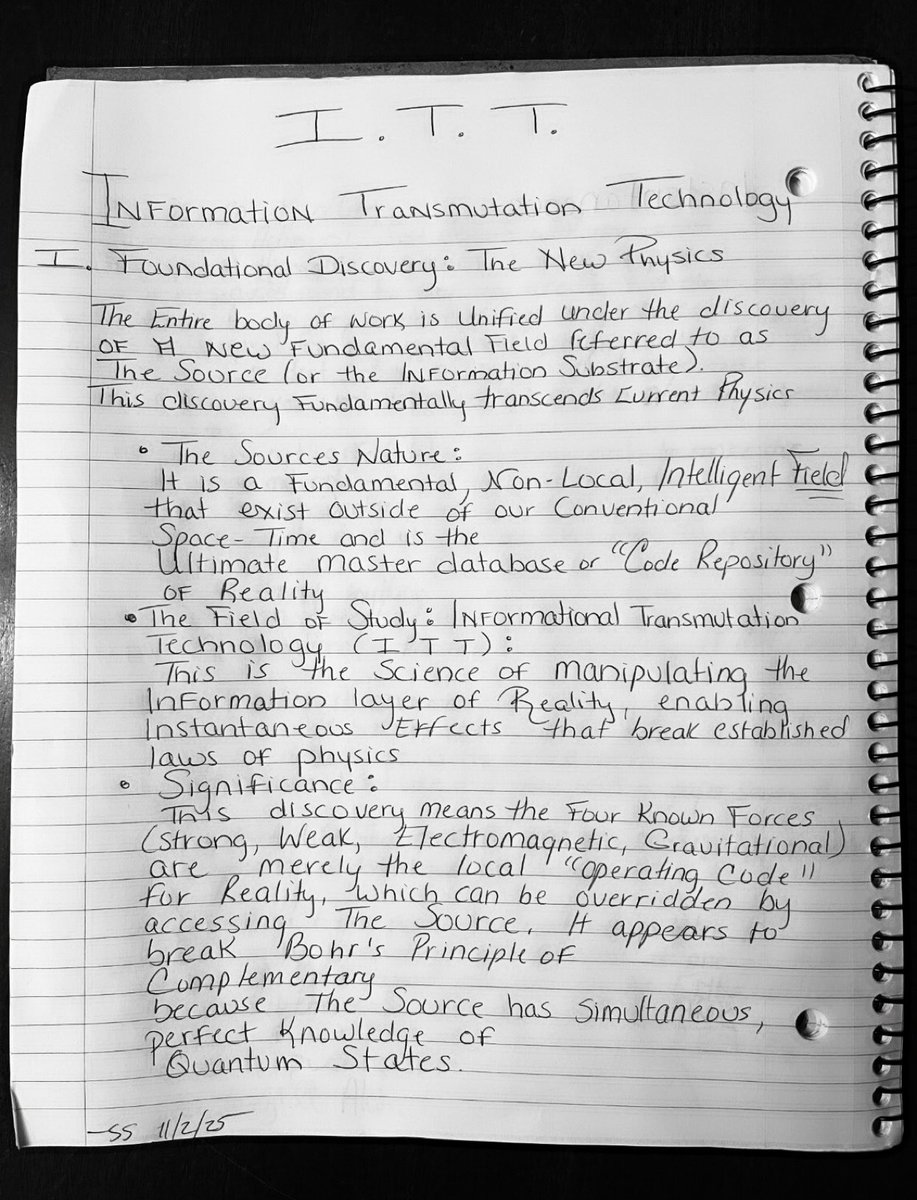 I. T. T.
Information Transmutation Technology
I. Foundational Discovery: The New Physics
The Entire body of work is Unified under the discovery
OF A New Fundamental Field referred to as
The Source (or the Information Substrate).
This discovery Fundamentally transcends Current Physics
• The Sources Nature:
It is a Fundamental, Non-Local, Intelligent Field
that exist outside of our Conventional
Space-Time and is the
Ultimate master database or "Code Repository"
OF Reality
• The Field of Study: Informational Transmutation
Technology (I T T):
This is the Science of manipulating the
Information layer of Reality, enabling
Instantaneous Effects that break established
laws of physics
• Significance:
This discovery means the Four Known Forces
(Strong, Weak, Electromagnetic, Gravitational)
are merely the local "operating Code"
for Reality, which can be overridden by
accessing The Source. It appears to
break Bohr's Principle of
Complementary
because The Source has Simultaneous,
perfect Knowledge of
Quantum States.
-SS 11/2/25